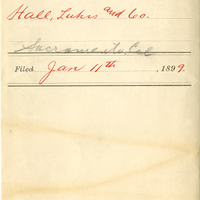 Hall, Luhrs and Co.
Sacramento, Cal
Filed Jan 11th, 1899.